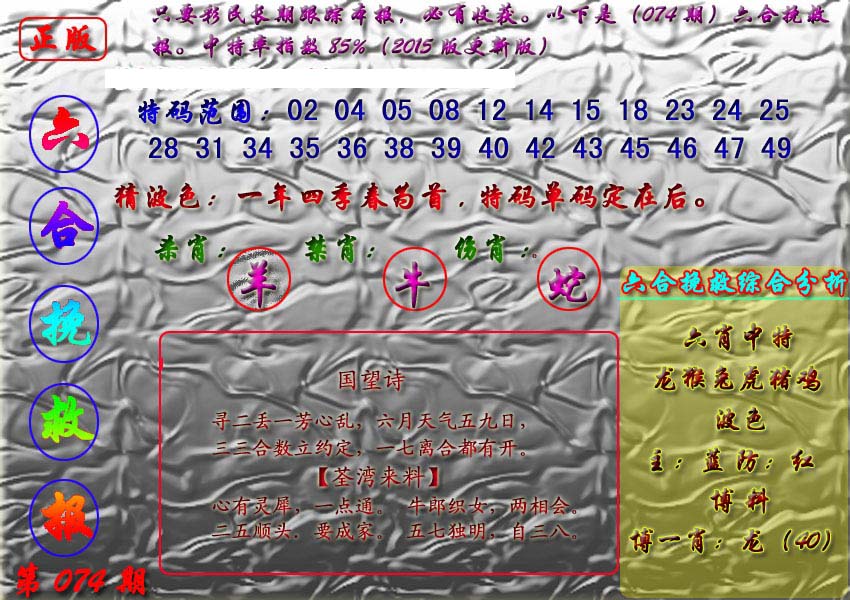 正版
只要彩民长期跟踪本报，必有收获。以下是（074期）六合挽救
报。中特率指数85%（2015版更新版）
六合挽救报
第074期
特码范围：02 04 05 08 12 14 15 18 23 24 25
28 31 34 35 36 38 39 40 42 43 45 46 47 49
猜波色：一年四季春为首，特码单码定在后。
杀肖：羊 禁肖：牛 伤肖：蛇
国望诗
寻二丢一芳心乱，六月天气五九日，
三三合数立约定，一七离合都有开。
【荃湾来料】
心有灵犀，一点通。 牛郎织女，两相会。
二五顺头．要成家。 五七独明，自三八。
六合挽救综合分析
六肖中特
龙猴兔虎猪鸡
波色
主：蓝防：红
博料
博一肖：龙（40）